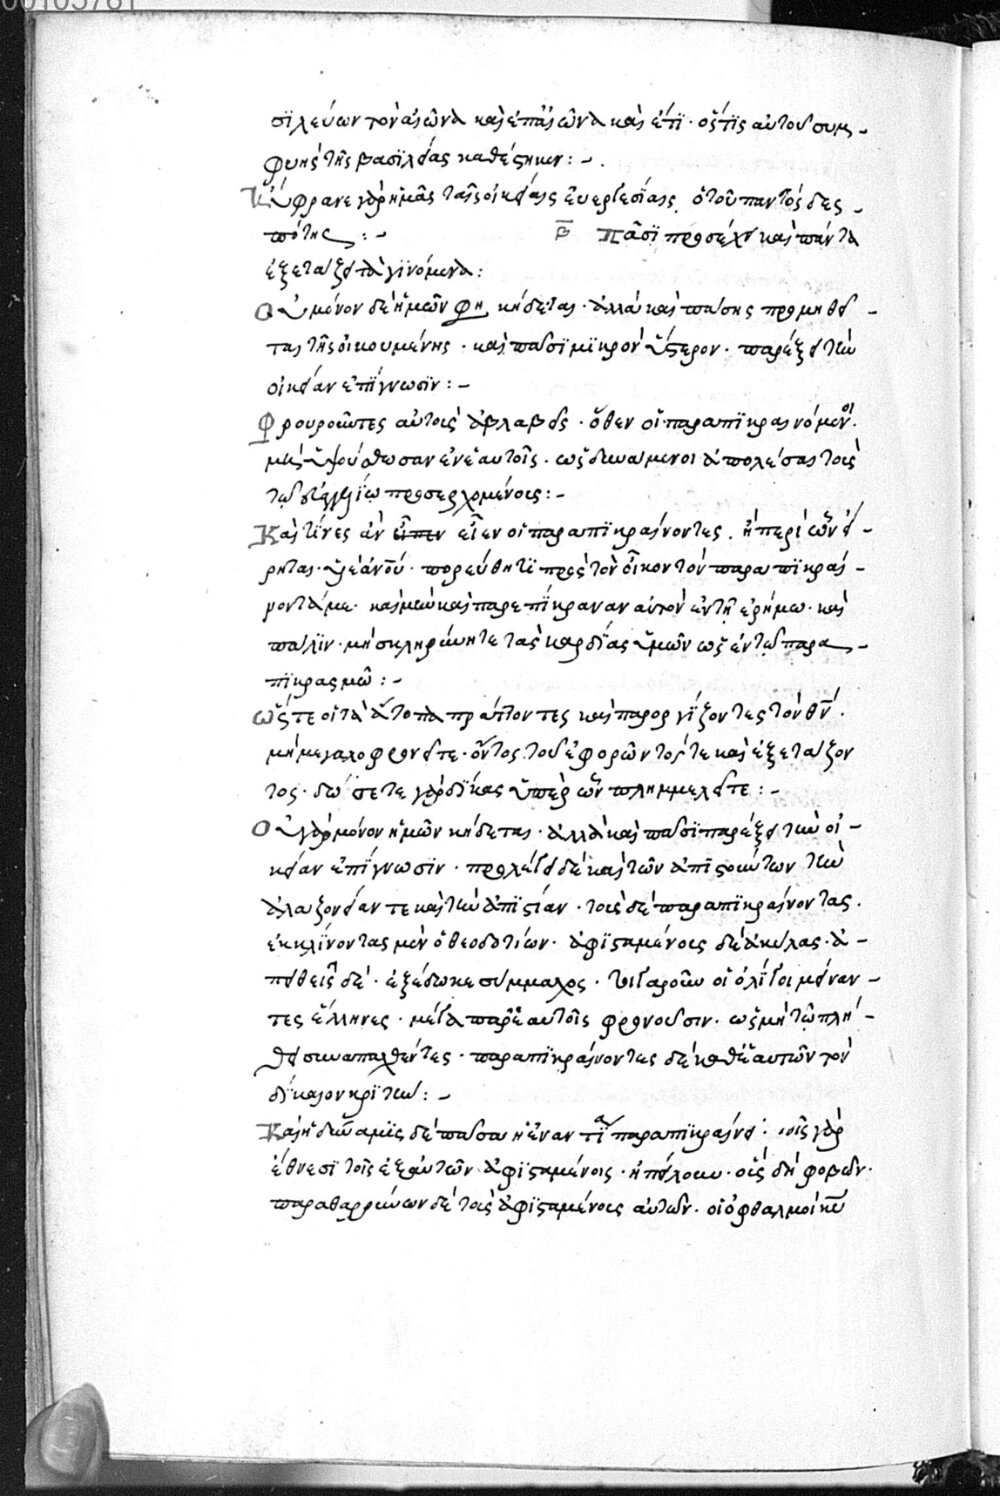 00105761
σϊλεύων τὸν αἰῶνα καὶ ἐπ' αἰῶνα καὶ ἔτϊ · ὅς τϊς αὐτοῦ συμ-
φυὴς τῆς βασϊλείας καθέστηκεν : -
Εὔφρανε γὰρ ἡμᾶς ταῖς οἰκείαις εὐεργεσίαις ὁ τοῦ παντὸς δεσ-
πότης : - β Πᾶσϊ προσέχει καὶ πάντα
ἐξετάζει τὰ γϊνόμενα :
Οὐ μόνον δὲ ἡμῶν φη κήδεται · ἀλλὰ καὶ πάσης προμηθεῖ-
ται τῆς οἰκουμένης · καὶ πᾶσϊ μϊκρὸν ὕστερον · παρέξει τὴν
οἰκείαν ἐπΐγνωσϊν : -
Φρουροῦντες αὐτοὺς ἀβλαβεῖς · ὅθεν οἱ παραπϊκραινόμενοι
μὴ ὑψούσθωσαν ἐν ἑαυτοῖς · ὡς δυνάμενοι ἀπολέσαι τοὺς
τῷ εὐαγγελΐῳ προσερχομένους : -
Καὶ τΐνες ἂν εἶπεν εἶεν οἱ παραπϊκραίνοντες · ἢ περὶ ὧν εἴ-
ρηται · υἱὲ ἀνου · πορεύθητϊ πρὸς τὸν οἶκον τὸν παραπϊκραί-
νοντά με · καὶ μὴν καὶ παρεπΐκραναν αὐτὸν ἐν τῇ ἐρήμω · καὶ
πάλϊν · μὴ σκληρύνητε τὰς καρδΐας ὑμῶν ὡς ἐν τῷ παρα-
πϊκρασμῶ : -
Ὥστε οἱ τὰ ἄτοπα πράττοντες καὶ παροργΐζοντες τὸν θν ·
μὴ μεγαλοφρονεῖτε · ὄντος τοῦ ἐφορῶντός τε καὶ ἐξετάζον
τος · δώσετε γὰρ δΐκας ὑπὲρ ὧν πλημμελεῖτε : -
Οὐ γὰρ μόνον ἡμῶν κήδεται · ἀλλὰ καὶ πᾶσϊ παρέξει τὴν οἰ-
κείαν ἐπΐγνωσϊν · προλέγει δὲ καὶ τῶν ἀπϊστούντων τὴν
ἀλαζονείαν τε καὶ τὴν ἀπϊστίαν · τοὺς δὲ παραπϊκραίνοντας ·
ἐκκλΐνοντας μὲν ὁ θεοδοτίων · ἀφϊσταμένους δὲ ἀκύλας · ἀ-
πειθεῖς δὲ · ἐξέδωκε σύμμαχος · μὴ γὰρ οὖν οἱ ὀλΐγοι μείναν-
τες ἕλληνες · μέγα παρ' ἑαυτοῖς φρονοῦσιν · ὡς μὴ τῶ πλή-
θει συναπαχθέντες · παραπϊκραίνοντες δὲ καθ' ἑαυτῶν τὸν
δΐκαιον κρϊτὴν : -
Καὶ ἡ δύναμϊς δὲ πᾶσα ἡ ἐναντΐα παραπϊκραίνει · τοῖς γὰρ
ἔθνεσϊ τοῖς ἐξ αὐτῶν ἀφϊσταμένοις · ἠπείλουν · οἷς δὴ φοβεῖν ·
παραθαρρύνων δὲ τοὺς ἀφϊσταμένους αὐτῶν · οἱ ὀφθαλμοὶ κυ